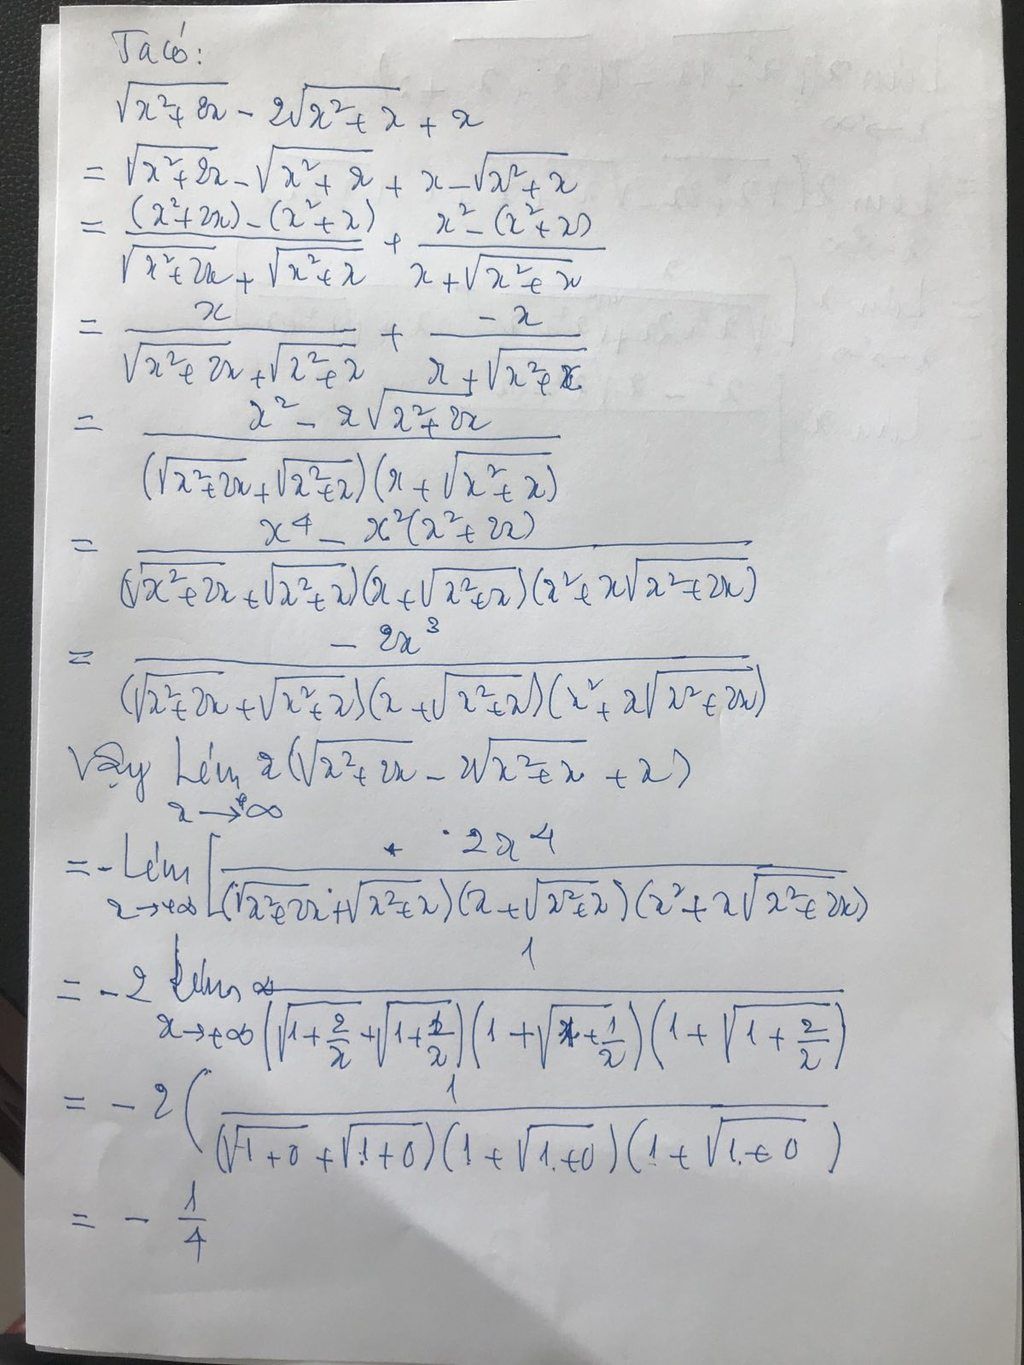 Ta có:
√(x²+2x) - 2√(x²+x) + x
= √(x²+2x) - √(x²+x) + x - √(x²+x)
= ((x²+2x) - (x²+x))/(√(x²+2x) + √(x²+x)) + (x² - (x²+x))/(x + √(x²+x))
= x/(√(x²+2x) + √(x²+x)) + (-x)/(x + √(x²+x))
= (x² - x√(x²+2x))/((√(x²+2x) + √(x²+x))(x + √(x²+x)))
= (x⁴ - x²(x²+2x))/((√(x²+2x) + √(x²+x))(x + √(x²+x))(x² + x√(x²+2x)))
= (-2x³)/((√(x²+2x) + √(x²+x))(x + √(x²+x))(x² + x√(x²+2x)))
Vậy Lim x→+∞ x(√(x²+2x) - 2√(x²+x) + x)
= -Lim x→+∞ [2x⁴/((√(x²+2x) + √(x²+x))(x + √(x²+x))(x² + x√(x²+2x)))
= -2 Lim x→+∞ 1/((√(1+2/x) + √(1+1/x))(1 + √(1+1/x))(1 + √(1+2/x)))
= -2(1/((√(1+0) + √(1+0))(1 + √(1+0))(1 + √(1+0)))
= -1/4